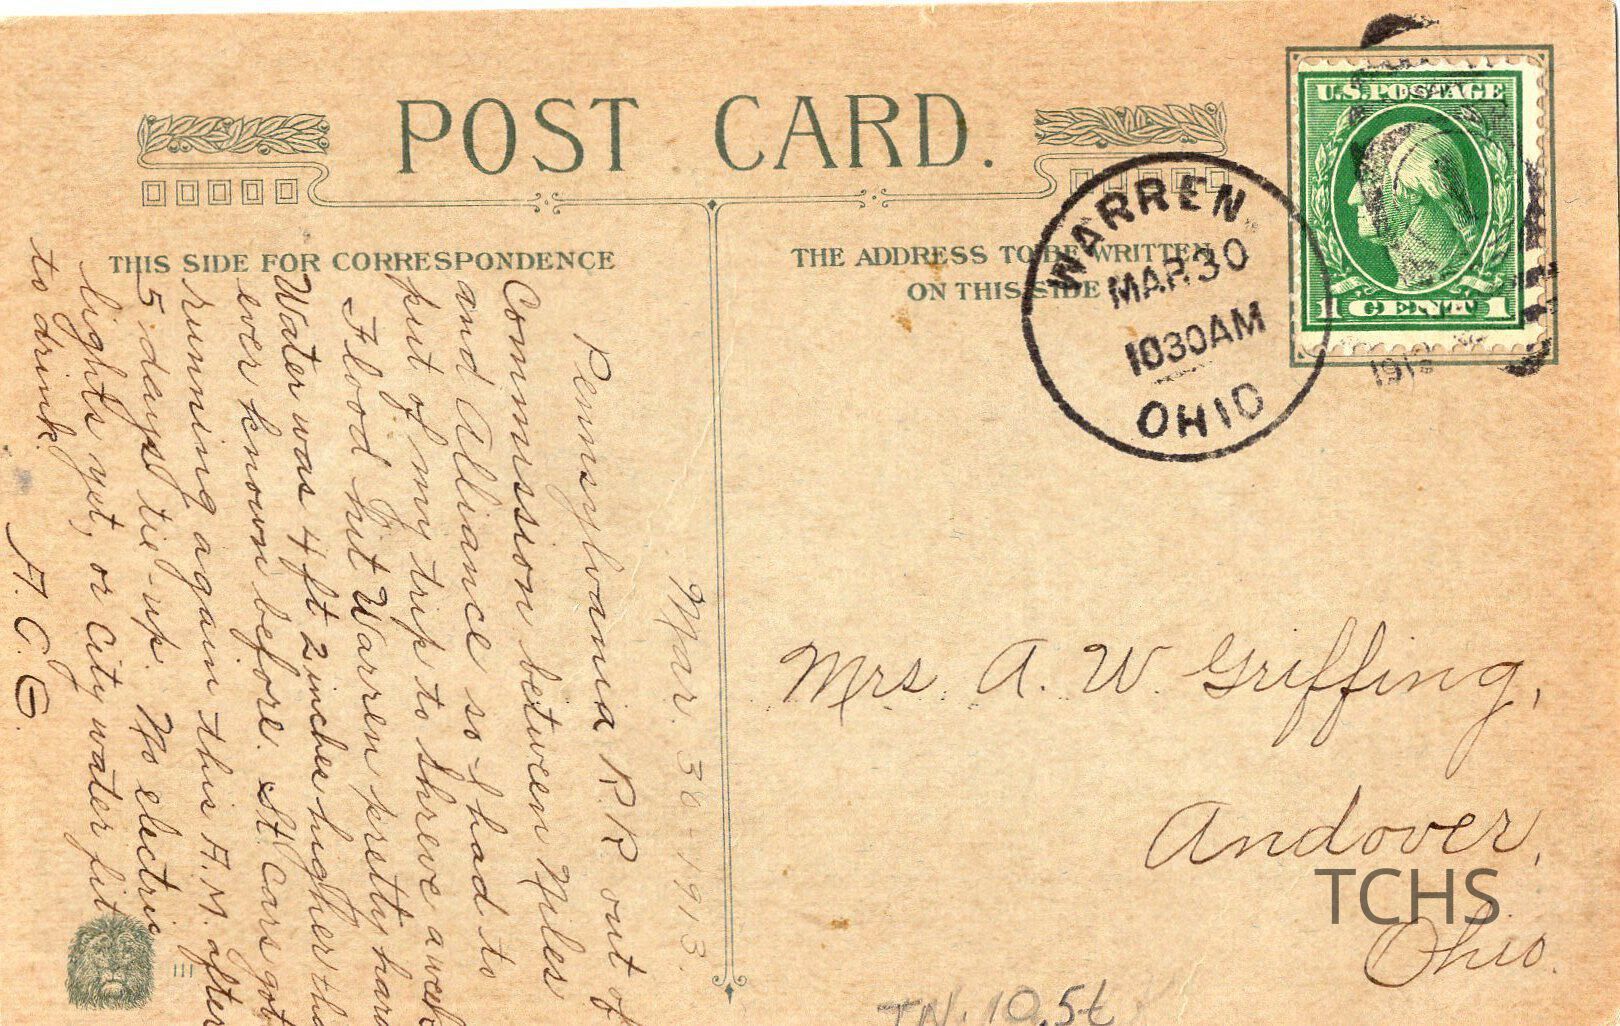 POST CARD.
THIS SIDE FOR CORRESPONDENCE
THE ADDRESS TO BE WRITTEN
ON THIS SIDE
WARREN
MAR 30
1030AM
OHIO
191
U.S. POSTAGE
1 CENT 1
Mar. 30-1913.
Pennsylvania R.R. out of
Commission between Niles
and Alliance so I had to
put of my trip to Shreve a week
Flood hit Warren pretty hard
Water was 4 ft 2 inches higher tha
ever known before. St. Cars got
running again this A.M. after
5 days tie-up. No electric
lights yet, or City water fit
to drink.
A. C. G.
Mrs. A. W. Griffing,
Andover,
Ohio.
TCHS
TN. 10.5t
III